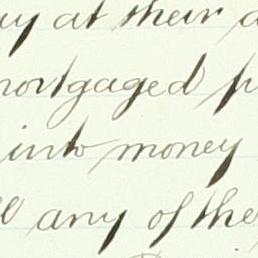 at their
mortgaged
into money
any of the